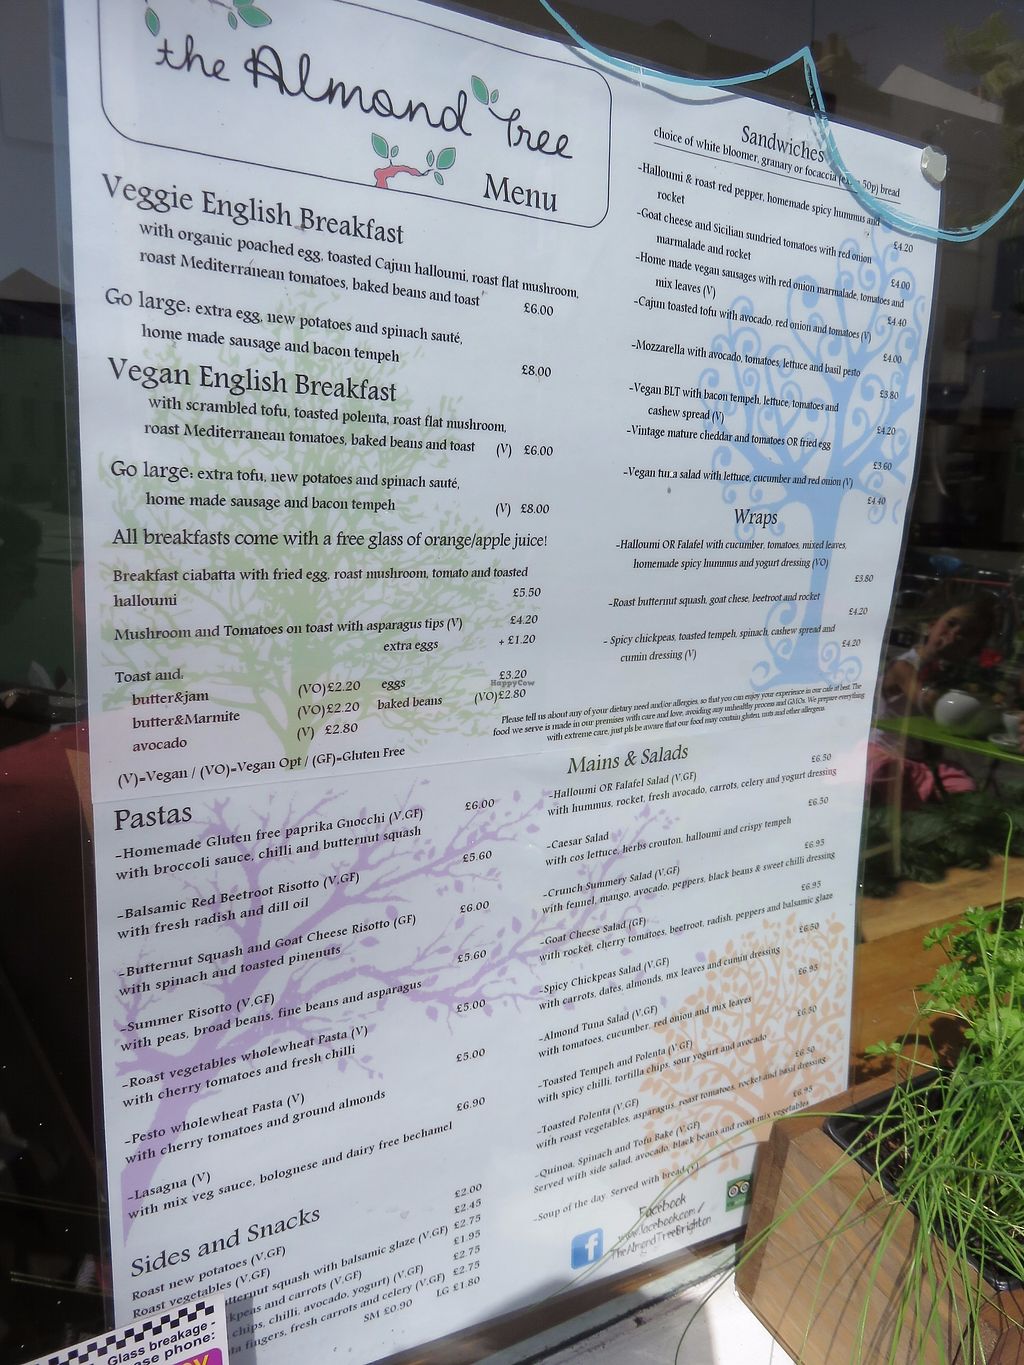 the Almond Tree
Menu
Veggie English Breakfast
with organic poached egg, toasted Cajun halloumi, roast flat mushroom,
roast Mediterranean tomatoes, baked beans and toast £6.00
Go large: extra egg, new potatoes and spinach sauté,
home made sausage and bacon tempeh £8.00
Vegan English Breakfast
with scrambled tofu, toasted polenta, roast flat mushroom,
roast Mediterranean tomatoes, baked beans and toast (V) £6.00
Go large: extra tofu, new potatoes and spinach sauté,
home made sausage and bacon tempeh (V) £8.00
All breakfasts come with a free glass of orange/apple juice!
Breakfast ciabatta with fried egg, roast mushroom, tomato and toasted
halloumi £5.50
Mushroom and Tomatoes on toast with asparagus tips (V) £4.20
extra eggs + £1.20
Toast and:
butter&jam (VO)£2.20 eggs £3.20
butter&Marmite (VO)£2.20 baked beans (VO)£2.80
avocado (V) £2.80
HappyCow
(V)=Vegan / (VO)=Vegan Opt / (GF)=Gluten Free
Sandwiches
choice of white bloomer, granary or focaccia 50p) bread
-Halloumi & roast red pepper, homemade spicy hummus and
rocket £4.20
-Goat cheese and Sicilian sundried tomatoes with red onion
marmalade and rocket £4.00
-Home made vegan sausages with red onion marmalade, tomatoes and
mix leaves (V) £4.40
-Cajun toasted tofu with avocado, red onion and tomatoes (V)
£4.00
-Mozzarella with avocado, tomatoes, lettuce and basil pesto
£3.80
-Vegan BLT with bacon tempeh, lettuce, tomatoes and
cashew spread (V) £4.20
-Vintage mature cheddar and tomatoes OR fried egg
£3.60
-Vegan tuna salad with lettuce, cucumber and red onion (V)
£4.40
Wraps
-Halloumi OR Falafel with cucumber, tomatoes, mixed leaves,
homemade spicy hummus and yogurt dressing (VO)
£3.80
-Roast butternut squash, goat chese, beetroot and rocket
£4.20
- Spicy chickpeas, toasted tempeh, spinach, cashew spread and
cumin dressing (V) £4.20
Please tell us about any of your dietary need and/or allergies, so that you can enjoy your experience in our cafe at best. The
food we serve is made in our premises with care and love, avoiding any unhealthy process and GMOs. We prepare everything
with extreme care, just pls be aware that our food may contain gluten, nuts and other allergens.
Pastas
-Homemade Gluten free paprika Gnocchi (V,GF) £6.00
with broccoli sauce, chilli and butternut squash
-Balsamic Red Beetroot Risotto (V,GF) £5.60
with fresh radish and dill oil
-Butternut Squash and Goat Cheese Risotto (GF) £6.00
with spinach and toasted pinenuts
-Summer Risotto (V,GF) £5.60
with peas, broad beans, fine beans and asparagus
-Roast vegetables wholewheat Pasta (V) £5.00
with cherry tomatoes and fresh chilli
-Pesto wholewheat Pasta (V) £5.00
with cherry tomatoes and ground almonds
-Lasagna (V) £6.90
with mix veg sauce, bolognese and dairy free bechamel
Sides and Snacks
Roast new potatoes (V,GF) £2.00
Roast vegetables (V,GF) £2.45
squash with balsamic glaze (V,GF) £2.75
and carrots (V,GF) £1.95
chips, chilli, avocado, yogurt) (V,GF) £2.75
fingers, fresh carrots and celery (V,GF) £2.75
SM £0.90 LG £1.80
Mains & Salads
-Halloumi OR Falafel Salad (V,GF) £6.50
with hummus, rocket, fresh avocado, carrots, celery and yogurt dressing
-Caesar Salad £6.50
with cos lettuce, herbs crouton, halloumi and crispy tempeh
-Crunch Summery Salad (V,GF) £6.95
with fennel, mango, avocado, peppers, black beans & sweet chilli dressing
-Goat Cheese Salad (GF) £6.95
with rocket, cherry tomatoes, beetroot, radish, peppers and balsamic glaze
-Spicy Chickpeas Salad (V,GF) £6.50
with carrots, dates, almonds, mx leaves and cumin dressing
-Almond Tuna Salad (V,GF) £6.95
with tomatoes, cucumber, red onion and mix leaves
-Toasted Tempeh and Polenta (V,GF) £6.50
with spicy chilli, tortilla chips, sour yogurt and avocado
-Toasted Polenta (V,GF) £6.50
with roast vegetables, asparagus, roast tomatoes, rocket and basil dressing
-Quinoa, Spinach and Tofu Bake (V,GF) £6.95
Served with side salad, avocado, black beans and roast mix vegetables
-Soup of the day Served with bread (V)
Facebook
www.facebook.com/
TheAlmondTreeBrighton
f
Glass breakage -
phone: